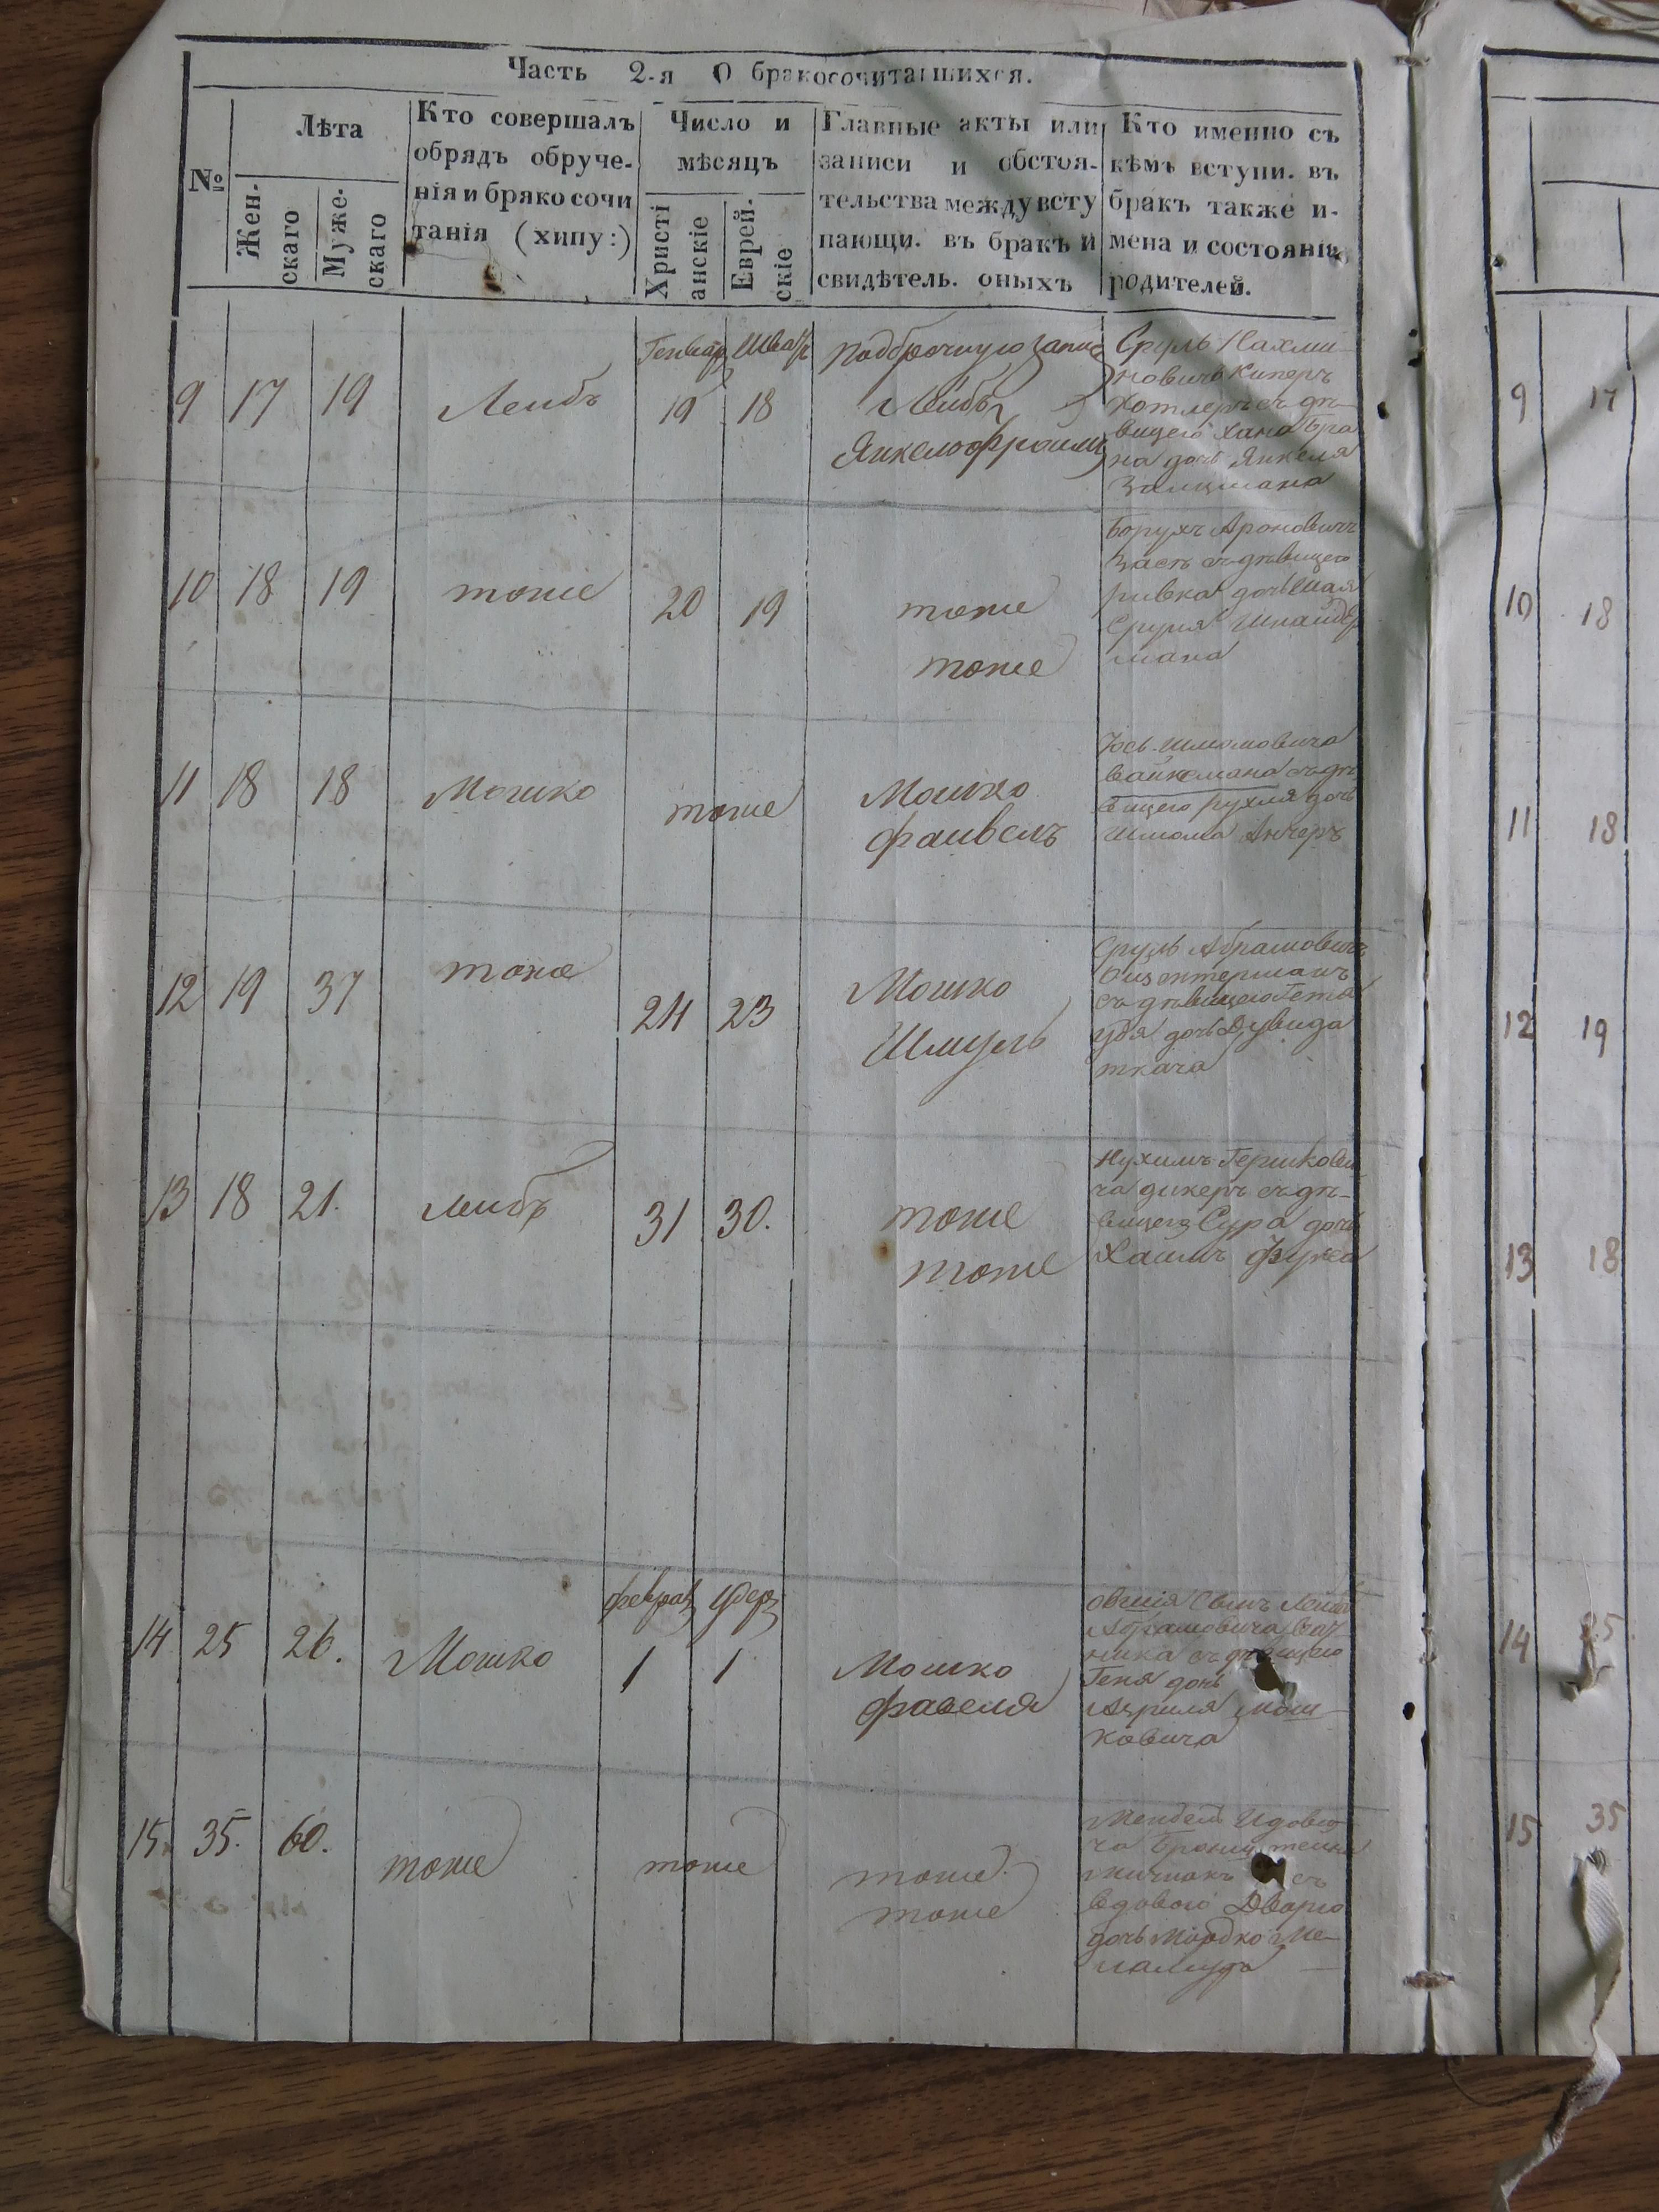 Часть 2-я О бракосочитавшихся.
№
Лѣта
Жен-
скаго
Муже-
скаго
Кто совершалъ
обрядъ обруче-
нія и бряко сочи
танія (хипу:)
Число и
мѣсяцъ
Христі
анскіе
Еврей-
скіе
Главные акты или
записи и обстоя-
тельства между всту
пающи. въ бракъ и
свидѣтель. оныхъ
Кто именно съ
кѣмъ вступи. въ
бракъ также и-
мена и состоянія
родителей.
9 17 19 Леибъ
19 18
Лейбъ
Сруль Нахми
новичь Киперъ
съ дѣ
вицею Хана Бра
на дочь Янкеля
Залцмана
10 18 19 тоже 20 19 тоже
тоже
Борухъ Ароновичъ
съ дѣвицею
ривка дочь Шая
Сруля Шнайдер
мана
11 18 18 Мошко тоже Мошко
фаивель
Іось Шмомовича
Вайнсмана съ дѣ
вицею рухля дочь
Шмома
12 19 37 тоже 24 23 Мошко
Шмуль
Сруль Абрамовичъ
съ дѣвицею
дочь Дувида
ткача
13 18 21. Леибъ 31 30. тоже
тоже
Нухимъ Гершкови
ча дикеръ съ дѣ-
вицею Сура дочь
Хаимъ фукса
14 25 26. Мошко
1 1
Мошко
фавеля
Абрамовича
ника съ дѣвицею
Геня дочь
Азриля Мош
ковича
15. 35. 60. тоже тоже тоже.
тоже
Мендель Идови
ча
съ
вдовою Дварю
дочь Мордко Ме-
ламуда
9 17
10 18
11 18
12 19
13 18
14 25
15 35